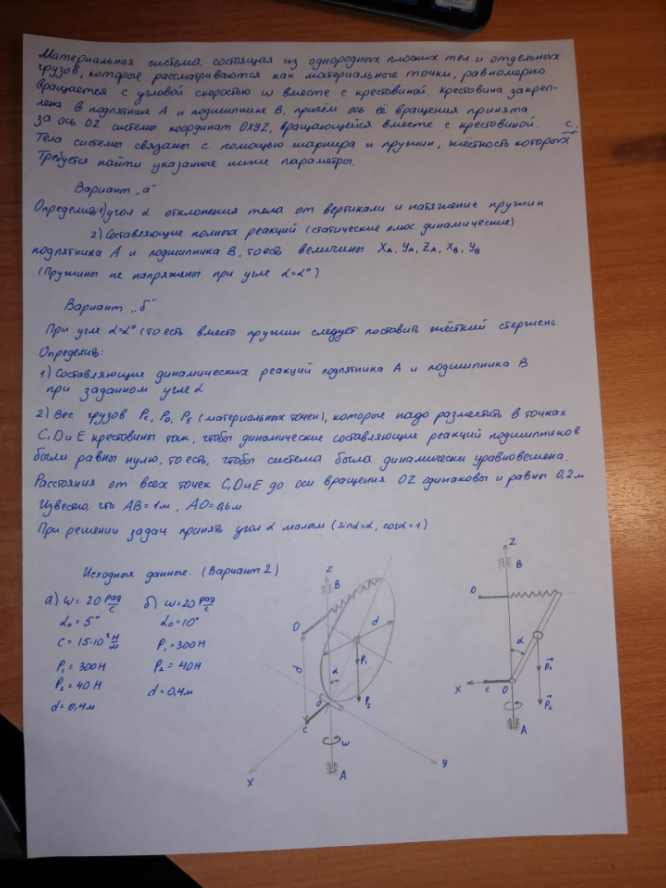 Материальная система, состоящая из однородных плоских тел и отдельных
грузов, которые рассматриваются как материальные точки, равномерно
вращается с угловой скоростью ω вместе с крестовиной. Крестовина закреп-
лена в подпятнике А и подшипнике В, причём ось её вращения принята
за ось OZ системы координат OXYZ, вращающейся вместе с крестовиной.
Тела системы связаны с помощью шарнира и пружин, жёсткость которых с.
Требуется найти указанные ниже параметры.
Вариант „а"
Определить: 1) угол α отклонения тела от вертикали и натяжение пружин
2) Составляющие полных реакций (статические плюс динамические)
подпятника А и подшипника В, то есть величины XA, YA, ZA, XB, YB
(Пружины не напряжены при угле α=α°)
Вариант „б"
При угле α=α° (то есть вместо пружин следует поставить жёсткий стержень
Определить:
1) Составляющие динамических реакций подпятника А и подшипника В
при заданном угле α
2) Вес грузов Pc, PD, PE (материальных точек), которые надо разместить в точках
C, D и E крестовины так, чтобы динамические составляющие реакций подшипников
были равны нулю, то есть, чтобы система была динамически уравновешена.
Расстояния от всех точек C, D и E до оси вращения OZ одинаковы и равны 0,2 м
Известно, что AB = 1м, AO=0,6м
При решении задач принять угол α малым (sinα=α, cosα=1)
Исходные данные. (Вариант 2)
а) ω = 20 рад/с б) ω=20 рад/с
α0 = 5° α0=10°
с = 15·10³ Н/м P1=300Н
P1 = 300Н P2 = 40Н
P2 = 40Н d=0,4м
d=0,4м
Z
B
D
d
d
α
P1
P2
C
ω
A
X
Y
Z
B
D
α
X
C
O
P1
P2
A